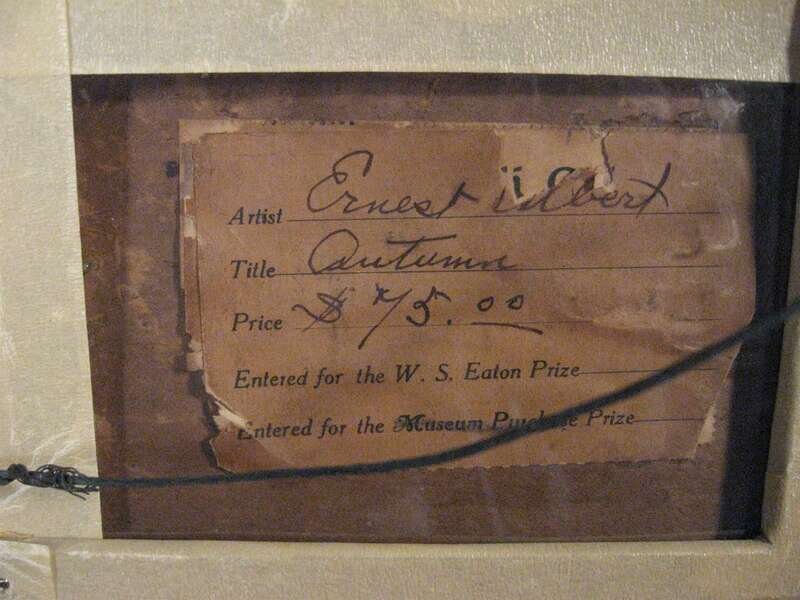 Artist Ernest Albert
Title Autumn
Price $75.00
Entered for the W. S. Eaton Prize
Entered for the Museum Purchase Prize